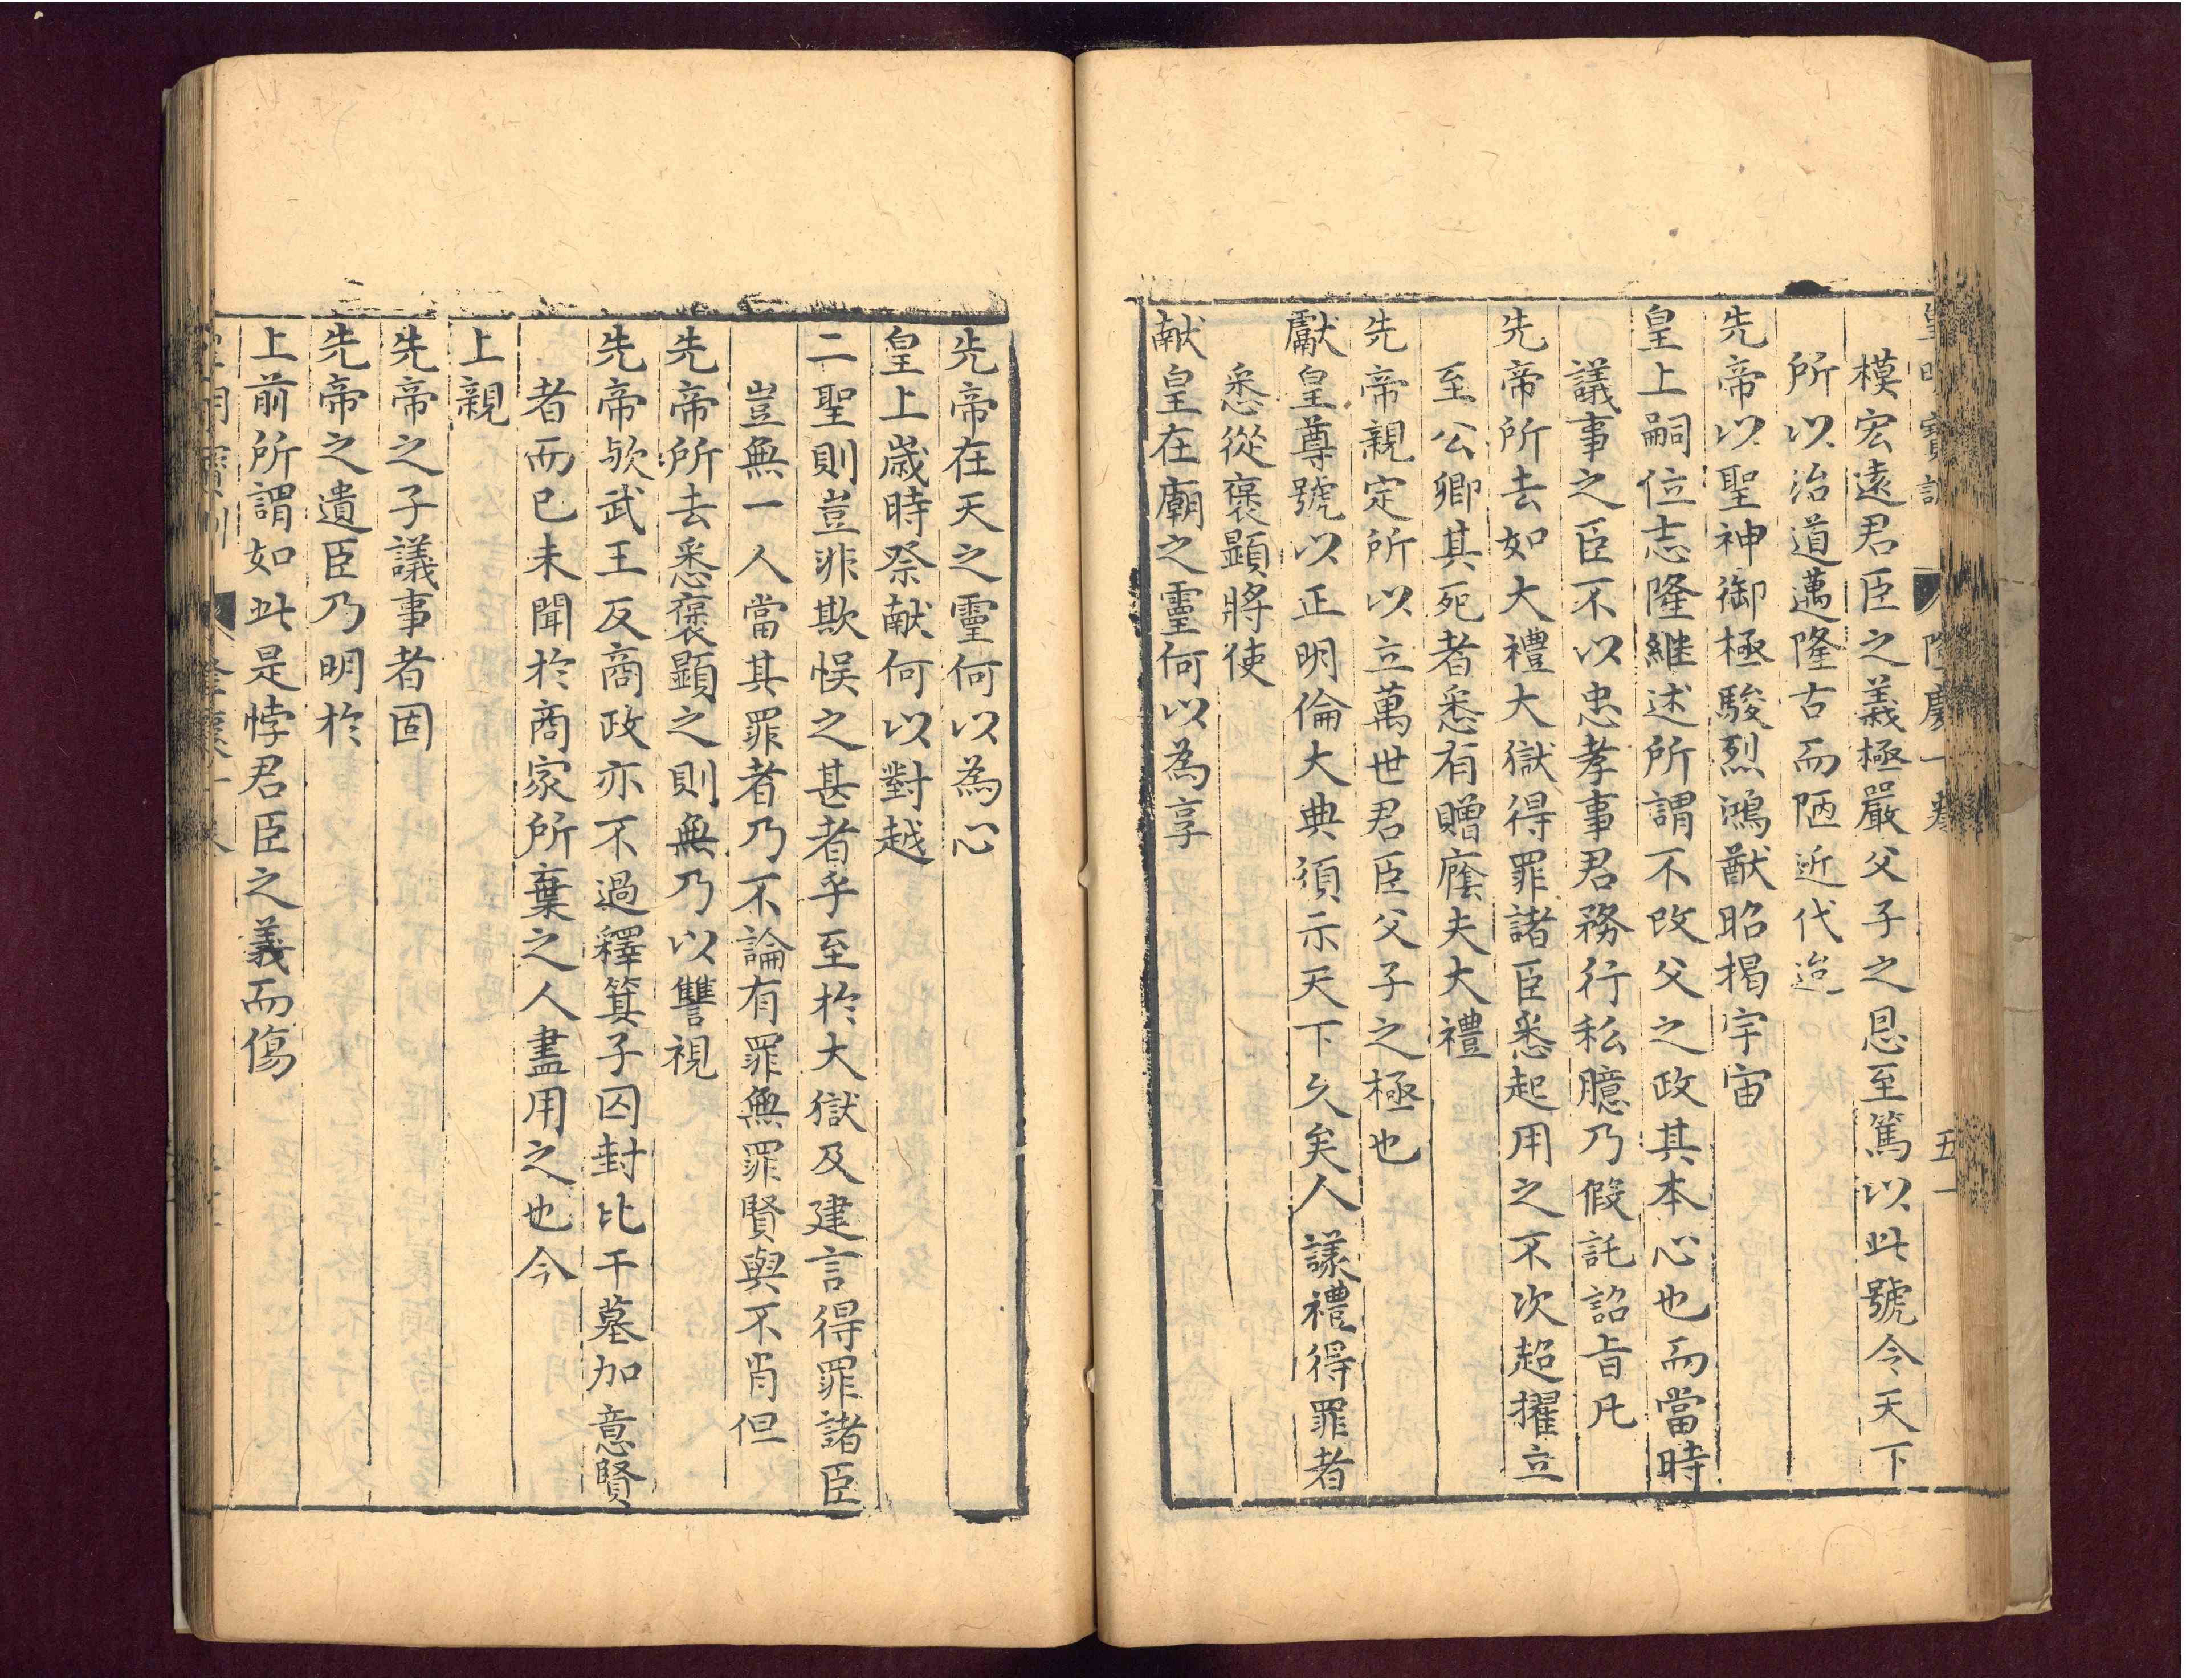 皇明寶訓 隆慶一卷 五一
模宏遠君臣之義極嚴父子之恩至篤以此號令天下
所以治道邁隆古而陋近代迨
先帝以聖神御極駿烈鴻猷昭揭宇宙
皇上嗣位志隆繼述所謂不改父之政其本心也而當時
議事之臣不以忠孝事君務行私臆乃假託詔旨凡
先帝所去如大禮大獄得罪諸臣悉起用之不次超擢立
至公卿其死者悉有贈廕夫大禮
先帝親定所以立萬世君臣父子之極也
獻皇尊號以正明倫大典須示天下久矣人議禮得罪者
悉從褒顯將使
献皇在廟之靈何以為享
先帝在天之靈何以為心
皇上歲時祭献何以對越
二聖則豈非欺悞之甚者乎至於大獄及建言得罪諸臣
豈無一人當其罪者乃不論有罪無罪賢與不肖但
先帝所去悉褒顯之則無乃以讐視
先帝歟武王反商政亦不過釋箕子囚封比干墓加意賢
者而已未聞於商家所棄之人盡用之也今
上親
先帝之子議事者固
先帝之遺臣乃明於
上前所謂如此是悖君臣之義而傷